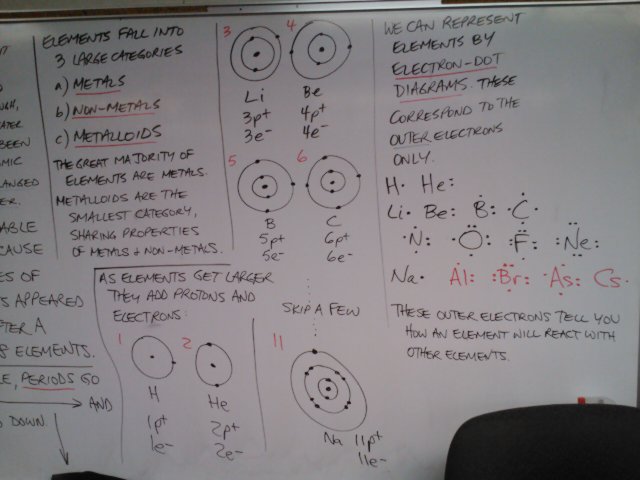 ELEMENTS FALL INTO
3 LARGE CATEGORIES
a) METALS
b) NON-METALS
c) METALLOIDS
THE GREAT MAJORITY OF
ELEMENTS ARE METALS.
METALLOIDS ARE THE
SMALLEST CATEGORY,
SHARING PROPERTIES
OF METALS + NON-METALS.
BEEN
ANGED
ABLE
CAUSE
ES OF
APPEARED
A
ELEMENTS.
PERIODS GO
AND
DOWN
AS ELEMENTS GET LARGER
THEY ADD PROTONS AND
ELECTRONS:
1
H
1p+
1e-
2
He
2p+
2e-
3
Li
3p+
3e-
4
Be
4p+
4e-
5
B
5p+
5e-
6
C
6p+
6e-
SKIP A FEW
11
Na 11p+
11e-
WE CAN REPRESENT
ELEMENTS BY
ELECTRON-DOT
DIAGRAMS. THESE
CORRESPOND TO THE
OUTER ELECTRONS
ONLY.
H· He:
Li· Be: B: C
N: O: F: Ne:
Na· Al: Br: As: Cs·
THESE OUTER ELECTRONS TELL YOU
HOW AN ELEMENT WILL REACT WITH
OTHER ELEMENTS.